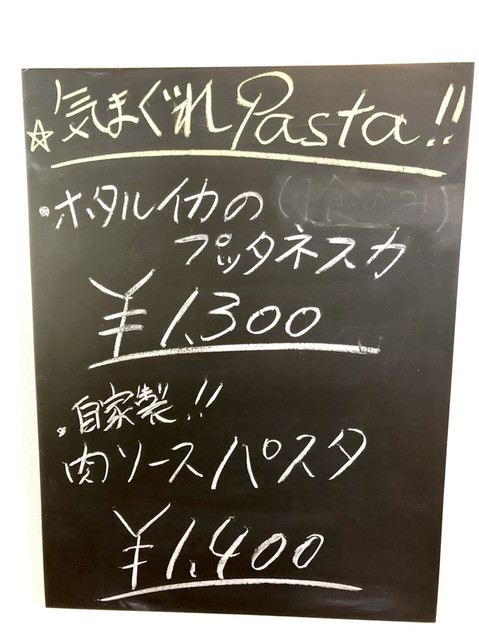 ☆気まぐれPasta!!
・ホタルイカの(1食のみ)
プッタネスカ
¥1,300
・自家製!!
肉ソースパスタ
¥1,400